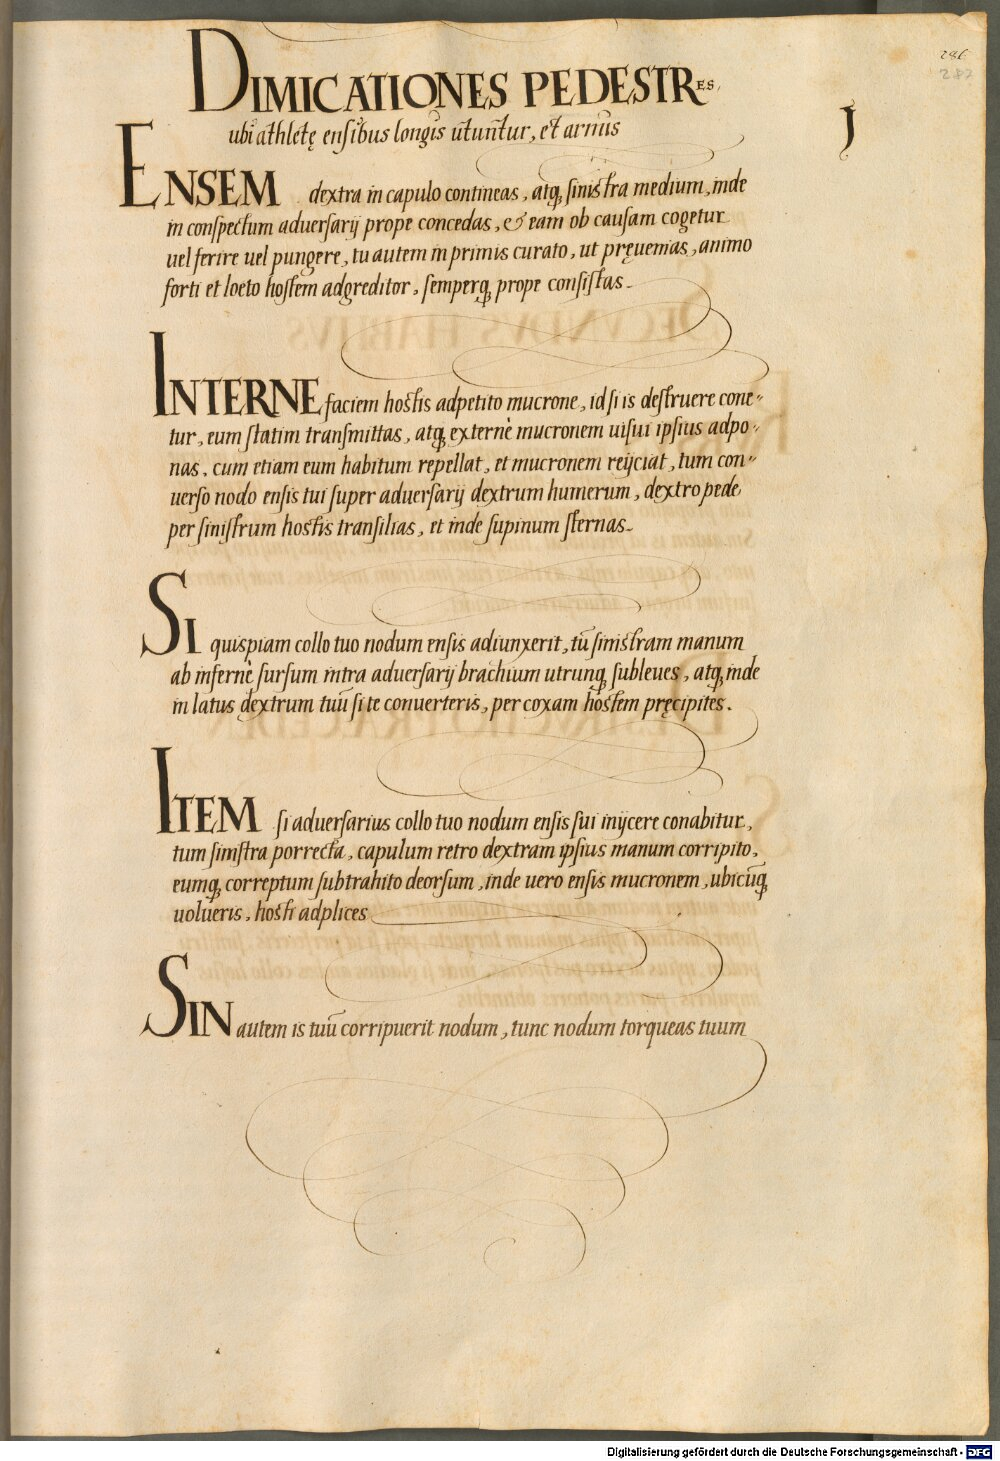 286
287
DIMICATIONES PEDESTRES,
ubi athletę ensibus longis utuntur, et armis
J
ENSEM dextra in capulo contineas, atq, sinistra medium, inde
in conspectum adversarij prope concedas, & eam ob causam cogetur
uel ferire uel pungere, tu autem in primis curato, ut pręuenias, animo
forti et loeto hostem adgreditor, semperq, prope consistas.
INTERNE faciem hostis adpetito mucrone, id si is destruere cone=
tur, eum statim transmittas, atq, externè mucronem uisui ipsius adpo=
nas, cum etiam eum habitum repellat, et mucronem reijciat, tum con=
uerso nodo ensis tui super aduersarij dextrum humerum, dextro pede
per sinistrum hostis transilias, et inde supinum sternas.
SI quispiam collo tuo nodum ensis adiunxerit, tū sinistram manum
ab infernè sursum intra aduersarij brachium utrunq, subleues, atq, inde
in latus dextrum tuū si te conuerteris, per coxam hostem pręcipites.
ITEM si aduersarius collo tuo nodum ensis sui inijcere conabitur,
tum sinistra porrecta, capulum retro dextram ipsius manum corripito,
eumq, correptum subtrahito deorsum, inde uero ensis mucronem, ubicūq,
uolueris, hosti adplices
SIN autem is tuū corripuerit nodum, tunc nodum torqueas tuum
Digitalisierung gefördert durch die Deutsche Forschungsgemeinschaft - DFG